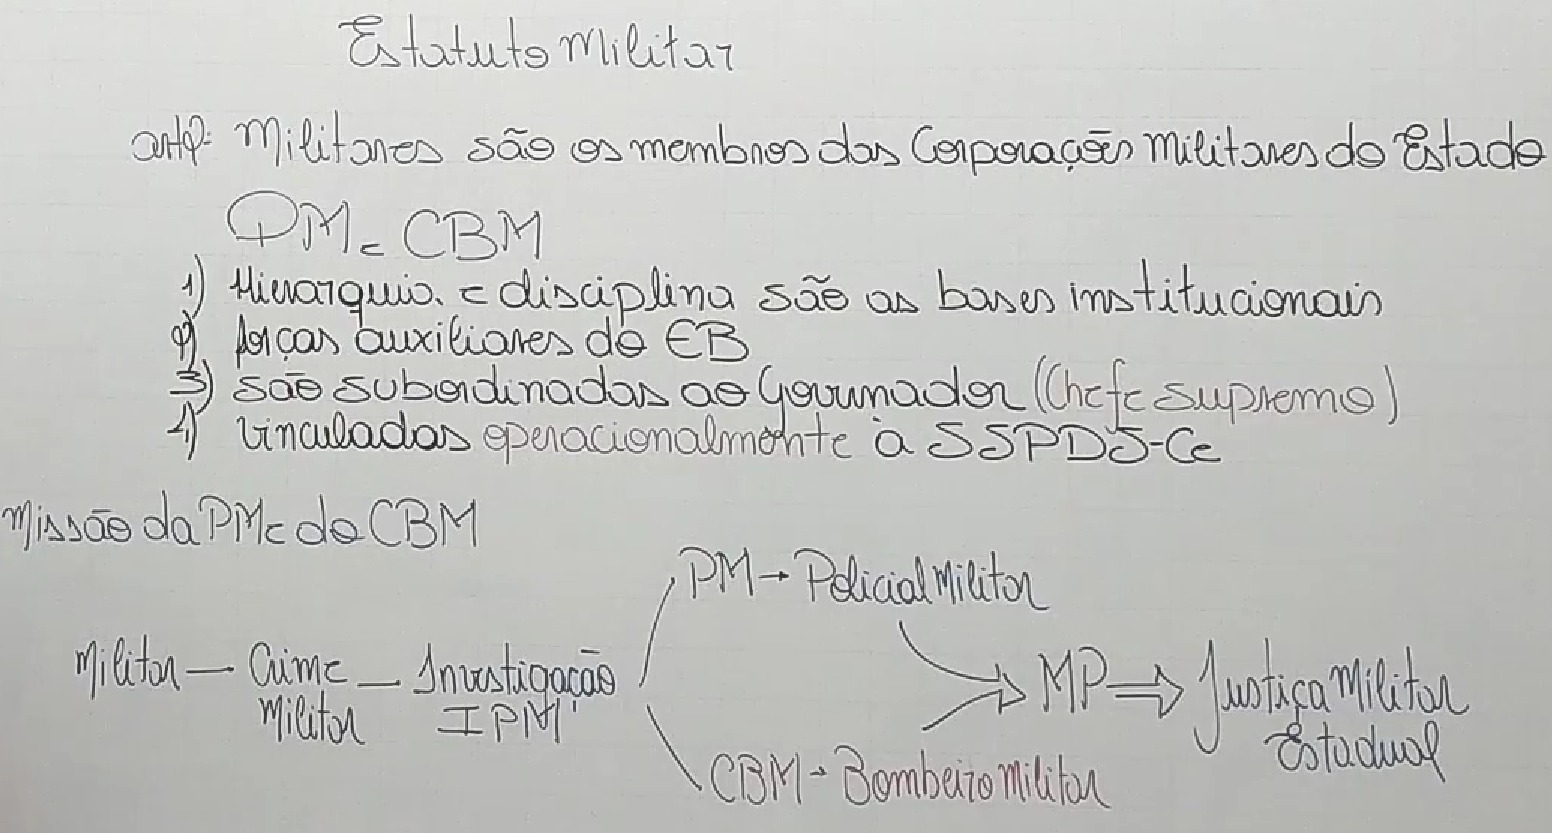 Estatuto Militar
art2º Militares são os membros das Corporações Militares do Estado
PM e CBM
1) Hierarquia e disciplina são as bases institucionais
2) forças auxiliares do EB
3) são subordinadas ao Governador (Chefe supremo)
4) vinculadas operacionalmente à SSPDS-Ce
Missão da PM e do CBM
PM → Policial Militar
Militar — Crime Militar — Investigação IPM
MP ⇒ Justiça Militar Estadual
CBM → Bombeiro Militar